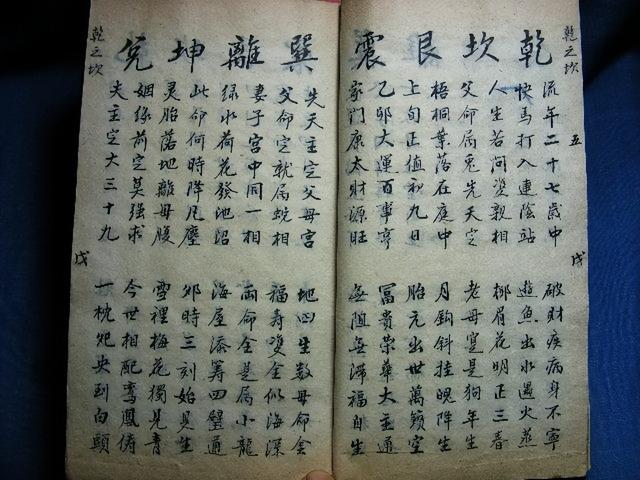 乾 坎 艮 震
乾之坎
五
戊
流年二十七歲中
破財疾病身不寧
快馬打入連陰站
遊魚出水遇火蒸
人生若问姿親相
柳眉花明正三春
父命属兎先天定
老母寔是狗年生
梧桐葉落在庭中
月鈎斜挂晚降生
上旬正值初九日
胎元出世萬籟空
乙卯大運百事亨
冨貴荣華大主通
家门康太財源旺
無阻無滞福自生
巽 離 坤 兌
先天主定父母宫
地㐫生数母命全
父命定就属蛇相
福寿雙全似海深
妻子宫中同一相
両命全是属小龍
绿水荷花發池沼
海屋添筹四璧通
此命何時降凡塵
卯時三刻始見生
灵胎落地離母腹
雪裡梅花獨見青
姻缘前定莫强求
今世相配鸾鳳俦
夫主定大三十九
一枕央到白頭
乾之坎
戊